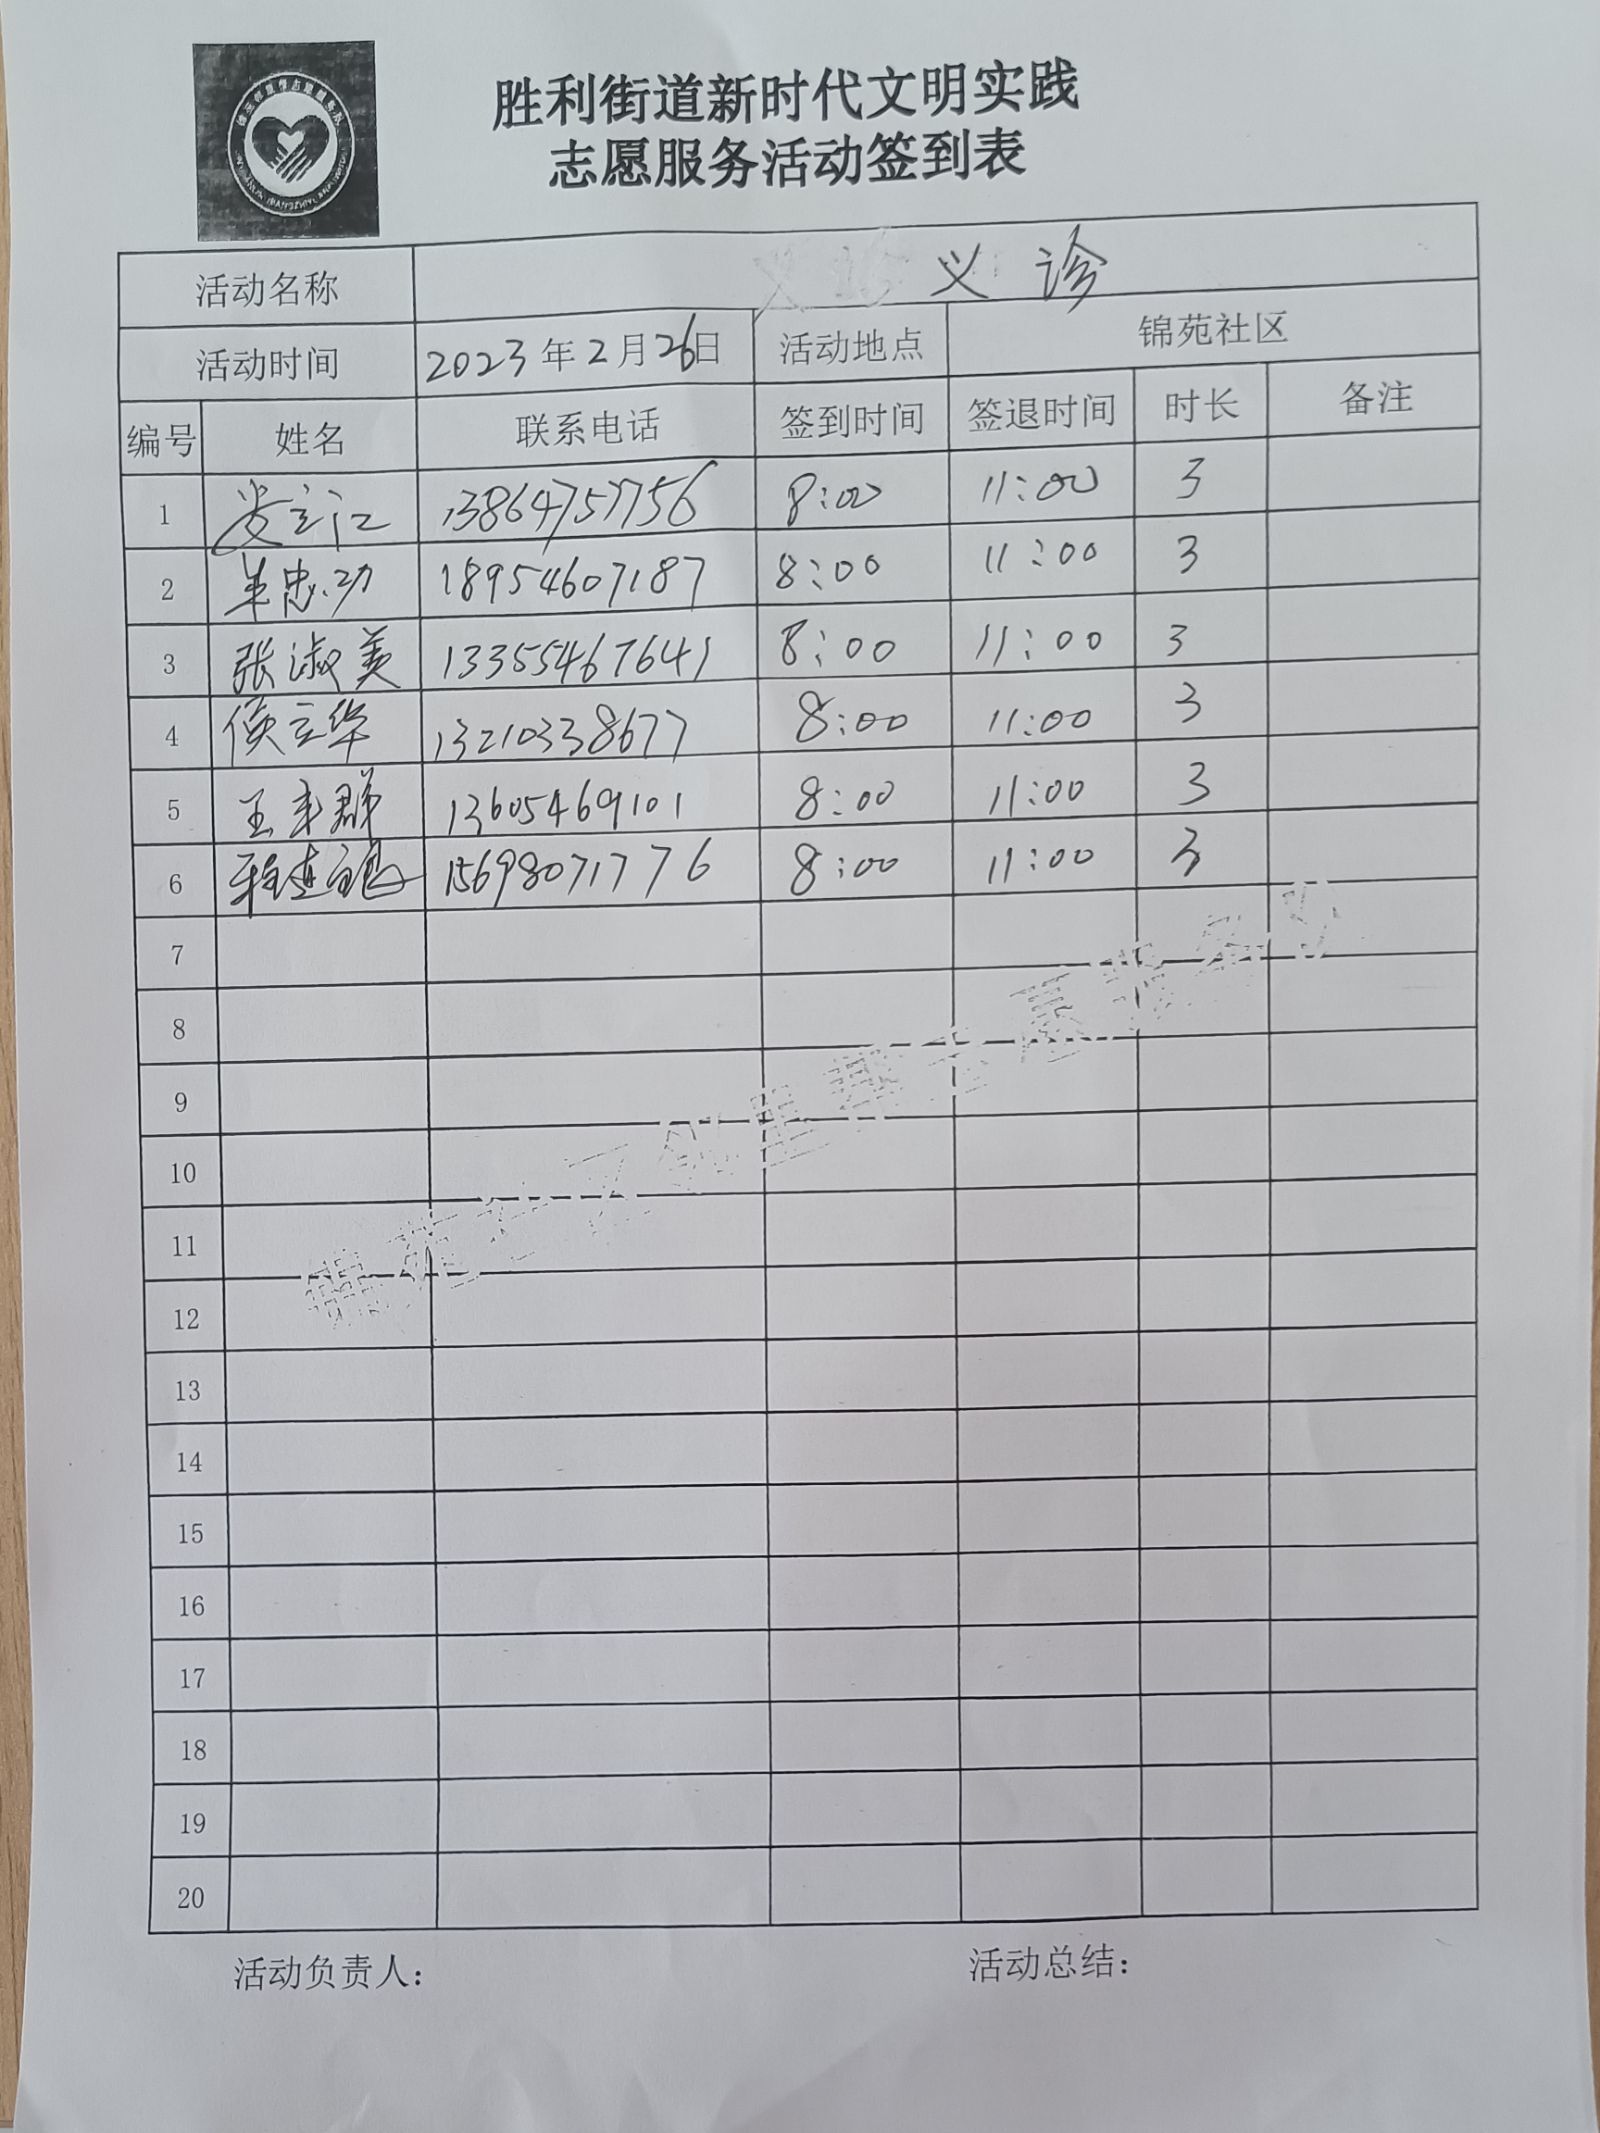 胜利街道新时代文明实践
志愿服务活动签到表
活动名称 义诊
活动时间 2023年2月26日 活动地点 锦苑社区
编号 姓名 联系电话 签到时间 签退时间 时长 备注
1 娄立江 13864757756 8:00 11:00 3
2 忠功 18954607187 8:00 11:00 3
3 张淑美 13355467641 8:00 11:00 3
4 侯立华 13210338677 8:00 11:00 3
5 王丰群 13605469101 8:00 11:00 3
6 15698071776 8:00 11:00 3
7
8
9
10
11
12
13
14
15
16
17
18
19
20
活动负责人: 活动总结: